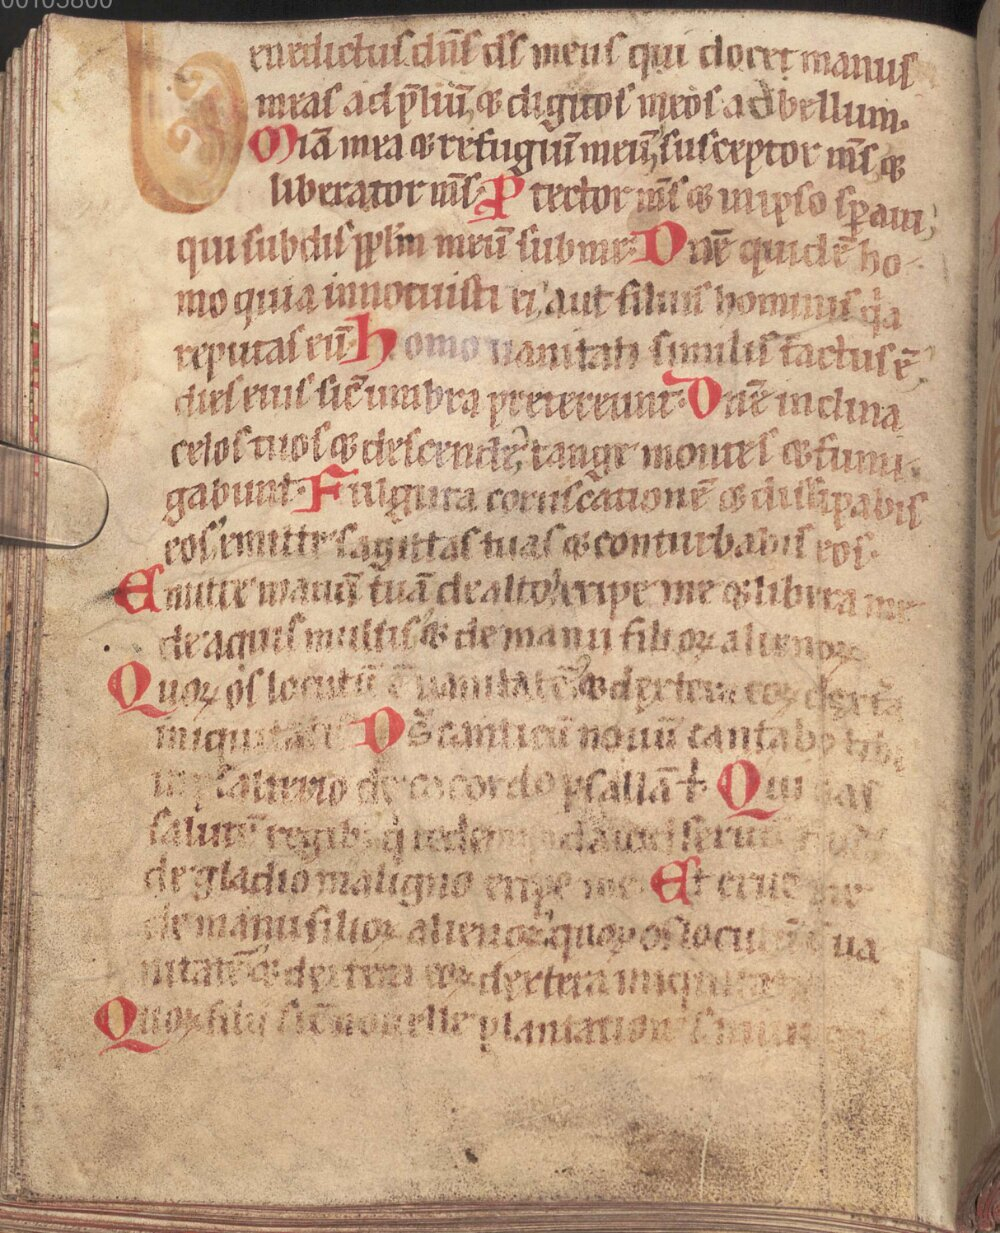 00105800
enedictus dn̄s ds̄ meus qui docet manus
meas ad p̄liū, ⁊ digitos meos ad bellum.
Mīa mea ⁊ refugiū meū, susceptor ms̄ ⁊
liberator ms̄. Ꝓtector ms̄ ⁊ in ipso sꝑaui,
qui subdis pplm̄ meū sub me. Dn̄e quid ē ho
mo quia innotuisti ei, aut filius hominis qͣa
reputas eū. Homo uanitati similis factus ē,
dies eius sic̄ umbra pretereunt. Dn̄e inclina
celos tuos ⁊ descende, tange montes ⁊ fumi
gabunt. Fulgura coruscationē ⁊ dissipabis
eos, emitte sagittas tuas ⁊ conturbabis eos.
Emitte manū tuā de alto, eripe me ⁊ libera me
de aquis multis ⁊ de manu filioꝝ alienoꝝ
Quoꝝ os locutū ē uanitatē, ⁊ dextera eoꝝ dextā
iniquitatis Ds̄ canticū nouū cantabo tibi
in psalterio decacordo psallā t̄ Qui das
salutē regibꝫ q̄ redem
de gladio maligno eripe me Et erue me
de manu filioꝝ alienoꝝ, quoꝝ os locutū ē ua
nitatē ⁊ dextera eoꝝ dextera iniquita
Quoꝝ filii sic̄ nouelle plantation